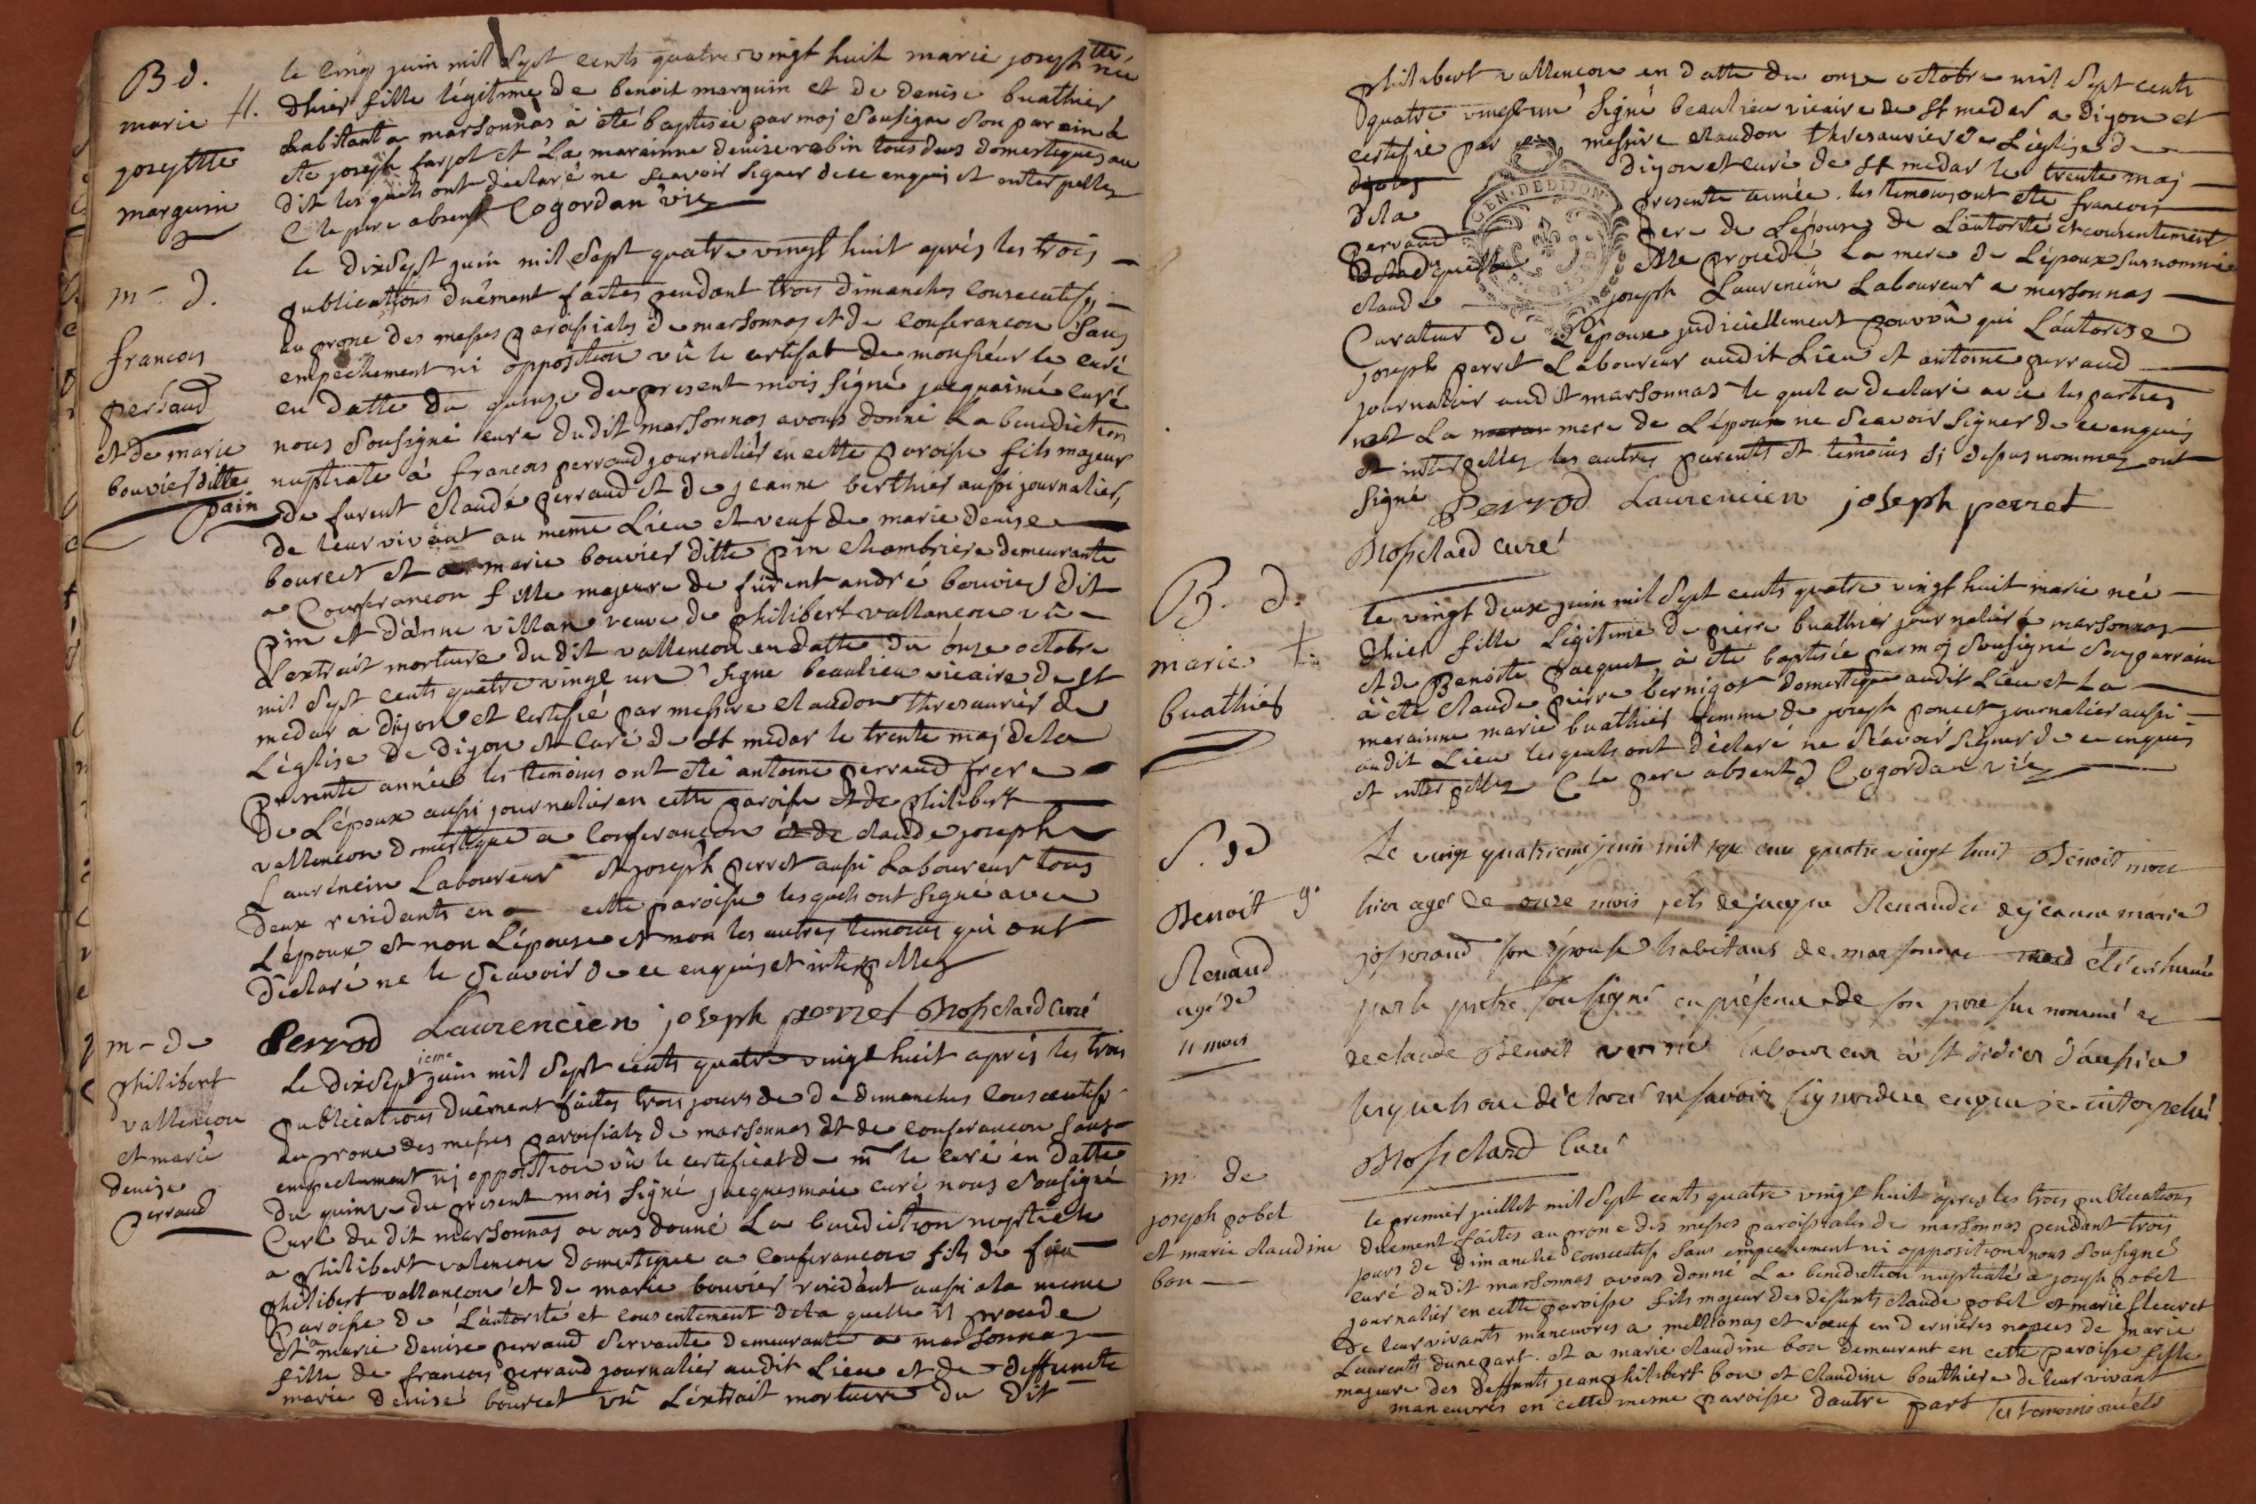 B d.
marie H.
josephtte
marguin
le cinq juin mil Sept cents quatre vingt huit marie josephtte née
dhier fille légitime de benoit marguin et de denise buathier
habitant a marsonnas à été baptisée par moj Sousigné Son parain à
été joseph farjot et La marainne denise robin tous deux domestiques au
dit les quels ont déclaré ne scavoir signer de ce enquis et interpellez
C le pere absent Cogordan vic
m - d.
francois
perraud
et de marie
bouvier ditte
pain
le dixSept juin mil Sept quatre vingt huit après les trois
publications duêment faites pendant trois dimanches consecutifs
au prone des messes paroissiales de marsonnas et de confrançon Sans
empechement ni opposition vû le certificat de monsieur le curé
en datte du quinze du present mois signé jacquaimé curé
nous Sousigné curé dudit marsonnas avons donné La benediction
nuptiale à francois perraud journalier en cette paroisse fils majeur
de furent claude perraud et de jeanne berthier aussi journalier,
de leur vivant au même Lieu et veuf de marie denise
bourcet et a marie bouvier ditte pin chambriere demeurante
a Confrancon fille majeure de furent andré bouvier dit
pin et d'anne villan veuve de philibert vallançon vû
Lextrait mortuire du dit vallencon en datte du onze octobre
mil Sept cents quatre vingt un signe beaulieu vicaire de St
medar a dijon et certifié par messire claudon thresaurier de
L'église de dijon et curé de St medar le trente maj de la
presente année les temoins ont été antoine perraud frere
de L'époux aussi journalier en cette paroisse et de philibert
vallencon domestique a confrançon et de claude joseph
Laurencin Laboureur et joseph perret aussi Laboureur tous
deux residants en cette paroisse lesquels ont signé avec
L'époux et non L'épouse et non les autres temoins qui ont
déclaré ne le Scavoir de ce enquis et interpellez
Perrod Laurencien joseph perret Mosschard Curé
m - de
philibert
vallencon
et marie
denise
perraud
Le dixSept ieme juin mil Sept cents quatre vingt huit après les trois
publications duêment faites trois jours de de dimanches consecutifs
au prone des messes paroissiales de marsonnas et de confrancon Sans
empechement ni opposition vû le certificat de mr le curé en datte
du quinze du present mois signé jacquesmaie curé nous Sousigné
Curé du dit marsonnas avons donné La benediction nuptiale
a philibert valencon domestique a confrancon fils de feu
philibert vallançon et de marie bouvier residant aussi a la meme
Paroisse de L'autorité et consentement de la quelle il procede
Et a marie denise perraud Servante demeurante a marsonnas
fille de francois perraud journalier audit Lieu et de deffuncte
marie denise bourcet vû L'extrait mortuire du dit
philibert vallencon en datte du onze octobre mil Sept cents
quatre vingt un Signé beaulieu vicaire de St medar a dijon et
certifié par messire claudon thresaurier de L'église de
dijon et curé de St medar le trente maj
de la presente année. les temoins ont été francois
perraud pere de L'épouse de L'autorité et consentement
de la quelle elle procede La mere de L'époux susnommée
claude joseph Laurencin Laboureur a marsonnas
Curateur de L'époux judiciellement pourvû qui L'autorise
joseph perret Laboureur audit Lieu et antoine perraud
journalier audit marsonnas le quel a declaré avec les parties
et La mere de L'époux ne Scavoir signer de ce enquis
et interpellez les autres parents et témoins ci dessus nommez ont
signé Perrod Laurencien joseph perret
Mosschard curé
B. d.
marie
buathier
le vingt deux juin mil Sept cents quatre vingt huit marie née
dhier fille Légitime de pierre buathier journalier à marsonnas
et de Benoite Jacquet à été baptisée par moj Sousigné Son parrain
à été claude pierre bernigot domestique audit Lieu et La
marainne marie buathier femme de joseph poncet journalier aussi
audit Lieu lesquels ont déclaré ne Scavoir signer de ce enquis
et interpellez C le pere absent Cogordan vic
S. gd
Benoit
Renaud
agé de
11 mois
Le vingt quatrieme juin mil sept cent quatre vingt huit Benoit mort
hier agé de onze mois fils de jacque Renaud et de jeanne marie
josserand son épouse habitans de marsonna a été inhumé
par le pretre sousigné en présence de son pere sus nommé et
de claude Benoit laboureur à St didier d'aussia
lesquels ont déclaré ne savoir signer de ce enquis et interpelés
Mosschard Curé
m. de
joseph pobel
et marie claudine
bon
le premier juillet mil Sept cents quatre vingt huit après les trois publications
duêment faites au prone des messes paroissiales de marsonnas pendant trois
jours de dimanche consecutifs Sans empechement ni opposition nous Sousigné
curé dudit marsonnas avons donné La benediction nuptiale a joseph pobel
journalier en cette paroisse fils majeur des deffunts claude pobel et marie fleuret
de leur vivants maneuvres a mellionas et voeuf en dernieres nopces de marie
Laurent d'une part. et a marie claudine bon demeurant en cette paroisse fille
majeure des deffunts jean philibert bon et claudine bouthiere de leur vivant
maneuvres en cette meme paroisse dautre part les temoins ont été
GEN. DE DIJON